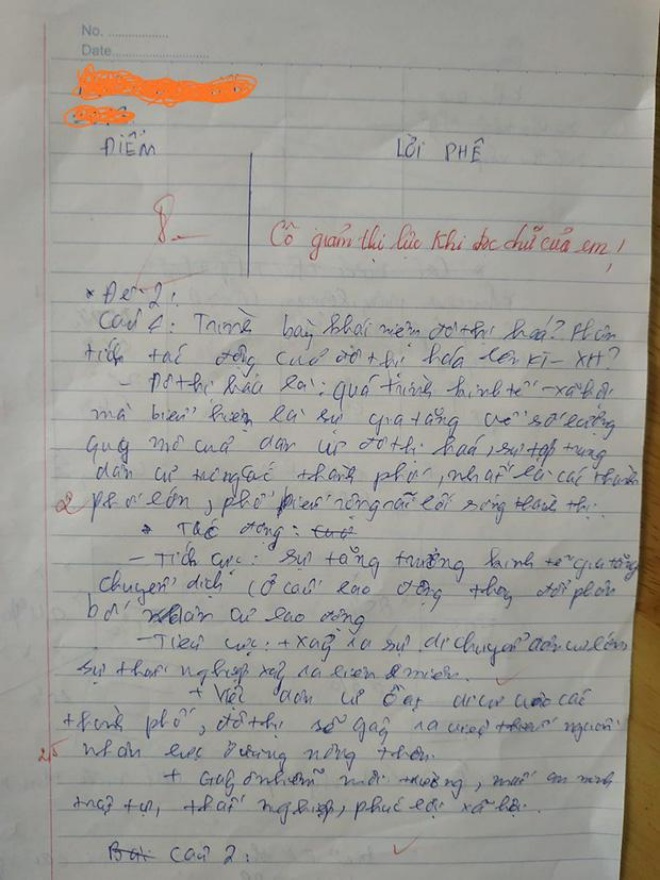 No. ................
Date........................
ĐIỂM
LỜI PHÊ
8.-
Cô giảm thị lực khi đọc chữ của em!
* Đề 2:
Câu 1: Trình bày khái niệm đô thị hoá? Phân
tích tác động của đô thị hóa lên KT-XH?
- Đô thị hóa là: quá trình kinh tế - xã hội
mà biểu hiện là sự gia tăng về số lượng
quy mô của dân cư đô thị hoá, sự tập trung
dân cư trong các thành phố, nhất là các thành
2 phố lớn, phổ biến rộng rãi lối sống thành thị.
* Tác động:
- Tích cực: sự tăng trưởng kinh tế gia tăng
chuyển dịch cơ cấu lao động thay đổi phân
bố dân cư lao động
- Tiêu cực: + xảy ra sự di chuyển dân cư lớn
sự thất nghiệp xảy ra liên miên.
+ Việc dân cư ồ ạt di cư vào các
thành phố, đô thị sẽ gây ra việc nguồn
2,5 nhân lực ở vùng nông thôn.
+ Gây ô nhiễm môi trường, mất an ninh
trật tự, thất nghiệp, phúc lợi xã hội.
Bài câu 2: